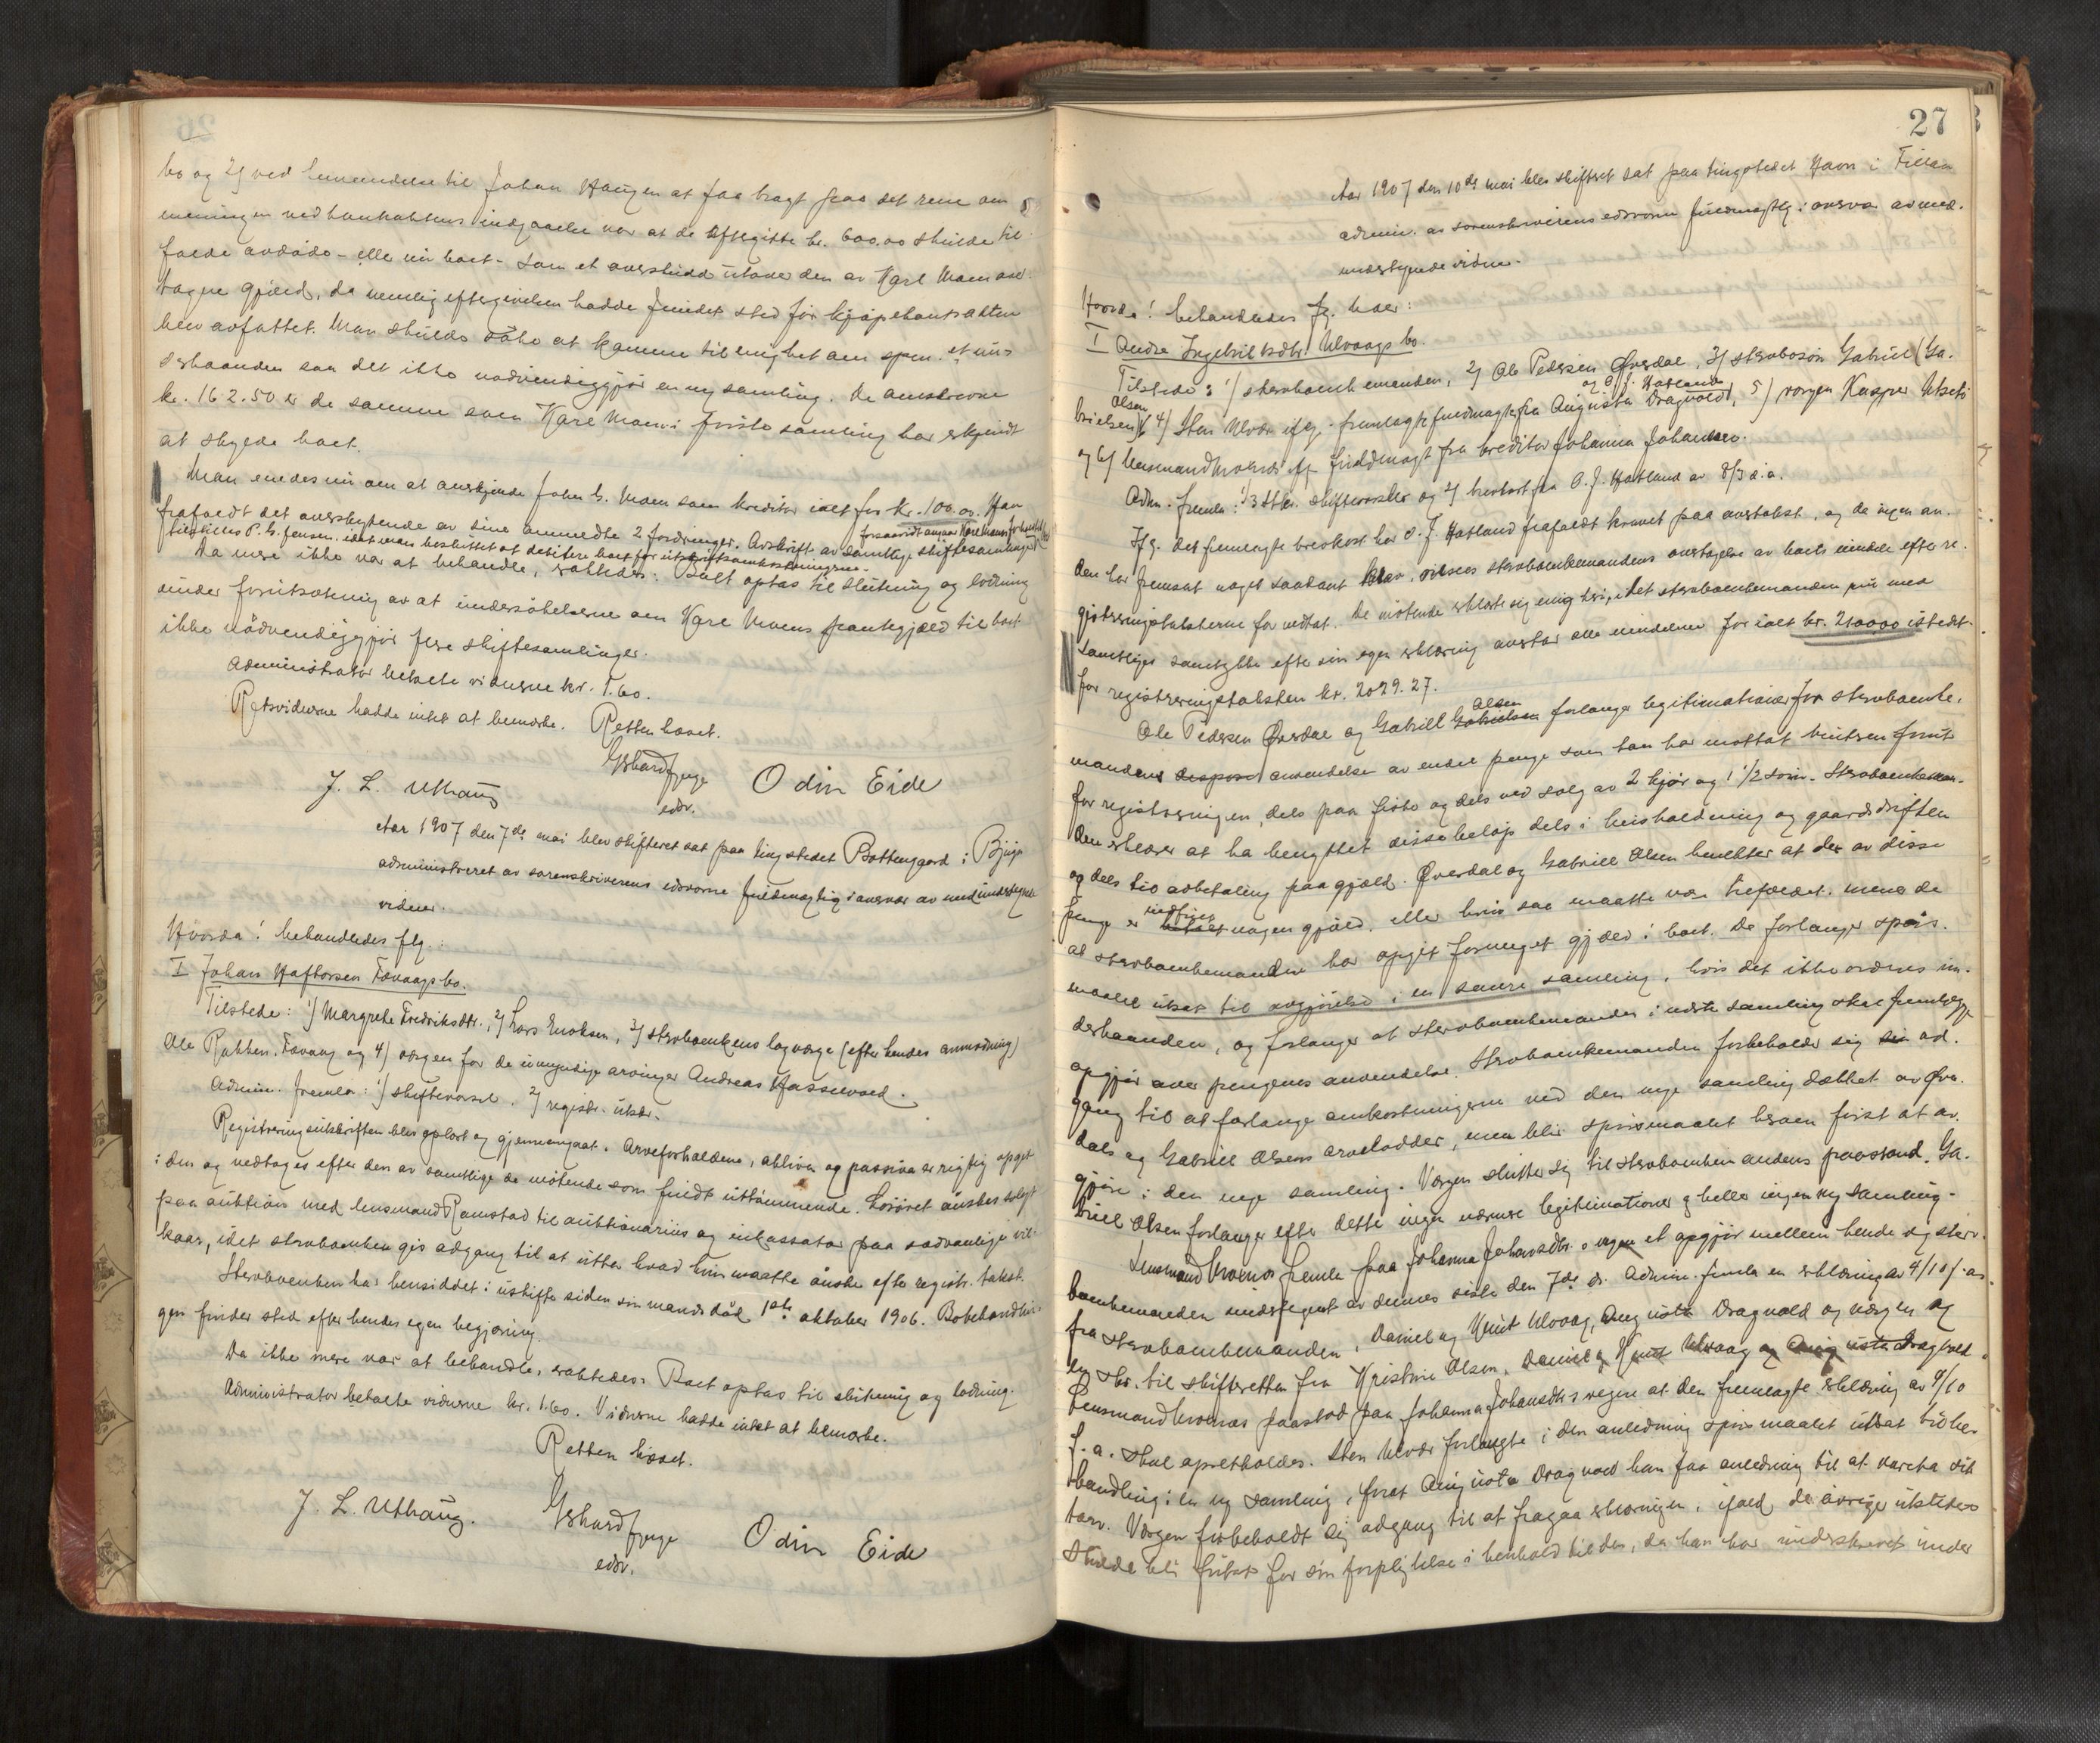 bo og 2) ved henvendelse til Johan Haugen at faa bragt paa det rene om
meningen ved kontraktens indgaaelse var at de eftergitte kr. 600.00 skulde til-
falde avdøde - eller nu boet - som et overskudd utover den av Karl Moen over-
tagne gjæld, da nemlig eftergivelsen hadde fundet sted før kjøpekontrakten
blev avfattet. Man skulde søke at komme til enighet om spm. et un-
derhaanden saa det ikke nødvendiggjør en ny samling. De omskrevne
kr. 162.50 er de samme som Karl Moen i første samling har erkjendt
at skylde boet.
Man enedes nu om at anerkjende John G. Moen som kreditor ialt for kr. 100.00. Han
frafaldt det overskytende av sine anmeldte 2 fordringer. Avskrift av samtlige skiftesamlinger
forsaavidt angaar Karl Moens forhold
tilstilles P. G. Jensen. idet man besluttet at debitere boet for utskriftsomkostningerne.
Da mere ikke var at behandle, sattedes: Boet optas til slutning og lodning
under forutsætning av at undersøkelserne om Karl Moens pantegjæld til boet
ikke nødvendiggjør flere skiftesamlinger.
Administrator betalte vidnerne kr. 1.60.
Retsvidnerne hadde intet at bemerke. Retten hævet.
J. L. Uthaug Gerhard Fjuge Odin Eide
edsv.
Aar 1907 den 7de mai blev skifteret sat paa tingstedet Bottengaard i Bjugn
administreret av sorenskriverens edsvorne fuldmægtig i overvær av medundertegnede
vidner.
Hvorda! behandledes flg.:
I Johan Haftorsen Tovaags bo.
Tilstede: 1) Margrethe Fredriksdtr., 2) Lars Enoksen, 3) strvboenkens lagværge (efter hendes anmodning)
Ole Rokken, Tovaag og 4) værgen for de umyndige arvinger Andreas Hasselvold.
Admin. fremla: 1) skiftevarsel. 2) registr. utskr.
Registreringsutskriften blev oplæst og gjennemgaat. Arveforholdene, aktiva og passiva er rigtig opgit
i den og vedtoges efter den av samtlige de møtende som fuldt uttømmende. Løsøret ønskes solgt
paa auktion med lensmand Ramstad til auktionarius og inkassator paa sædvanlige vil-
kaar, idet strvboenken gis adgang til at utta hvad hun maatte ønske efter registr. takst.
Strvboenken har hensiddet i uskifte siden sin mands død 1ste oktober 1906. Bobehandlin-
gen finder sted efter hendes egen begjæring.
Da ikke mere var at behandle, sattedes: Boet optas til slutning og lodning.
Administrator betalte vidnerne kr. 1.60. Vidnerne hadde intet at bemerke.
Retten hævet.
J. L. Uthaug. Gerhard Fjuge Odin Eide
edsv.
27
Aar 1907 den 10de mai blev skifteret sat paa tingstedet Havn i Fillan
admin. av sorenskriverens edsvorne fuldmægtig i overvær av med-
undertegnede vidner.
Hvorda! behandledes flg. boer:
I Andrea Ingebrigtsdtr. Ulvaags bo.
Tilstede: 1) strvboenkemanden, 2) Ole Pedersen Øverdal, 3) strvbosøn Gabriel (Ga-
og O. J. Hatland
Olsen
brielsen), 4) Sten Ulvær iflg. fremlagte fuldmagter fra Augusta Dragvold, 5) værgen Kasper Utseth
og 6) lensmand Moenæs iflg. fuldmagt fra kreditor Johanna Johansen.
Adm. fremla: 1) 3 stkr. skiftevarsler og 2) brevkort fra O. J. Hatland av 8/3 d.a.
Iflg. det fremlagte brevkort har O. J. Hatland frafaldt kravet paa overtakst, og da ingen an-
den har fremsat noget saadant krav, ansees strvboenkemandens overtagelse av boets eiendele efter re-
gistreringstaksterne for vedtat. De møtende erklærte sig enig heri, idet strvboenkemanden nu med
samtliges samtykke efter sin egen erklæring overtar alle eiendelene for ialt kr. 2100.00 istedet-
for registreringstaksten kr. 2029.27.
Olsen
Ole Pedersen Øverdal og Gabriel Gabrielsen forlanger legitimationer for strvboenke-
mandens dispos anvendelse av endel penge som han har mottat vinteren forut
for registreringen, dels paa fiske og dels ved salg av 2 kjør og 1 1/2 svin. Strvboenkeman-
den erklærer at ha benyttet disse beløp dels i husholdning og gaardsdriften
og dels til avbetaling paa gjæld. Øverdal og Gabriel Olsen benekter at der av disse
indfriet
penge er betalt nogen gjæld, eller hvis saa maatte være tilfældet, mener de
at strvboenkemanden har opgit formeget gjæld i boet. De forlanger spørs-
maalet utsat til avgjørelse i en senere samling, hvis det ikke ordnes un-
derhaanden, og forlanger at strvboenkemanden i næste samling skal fremlægge
opgjør over pengenes anvendelse. Strvboenkemanden forbeholder sig sin ad-
gang til at forlange omkostningerne ved den nye samling dækket av Øver-
dals og Gabriel Olsens arvelodder, men blir spørsmaalet herom først at av-
gjøre i den nye samling. Værgen slutter sig til strvboenkemandens paastand. Ga-
briel Olsen forlanger efter dette ingen nærmere legitimationer og heller ingen ny samling.
Lensmand Moenæs fremla paa Johanna Johansdtr.s vegne et opgjør mellem hende og strv-
boenkemanden undertegnet av dennes siste den 7de ds. Admin. fremla en erklæring av 4/10 f.a.
fra strvboenkemanden, Daniel og Knut Ulvaag, Augusta Dragvold og værgen og
en skr. til skifteretten fra Kristine Olsen, Daniel og Knut Ulvaag og Augusta Dragvold.
Lensmand Moenæs paastod paa Johanna Johansdtr.s vegne at den fremlagte erklæring av 4/10
f.a. skal opretholdes. Sten Ulvær forlangte i den anledning spørsmaalet utsat til be-
handling i en ny samling, forat Augusta Dragvold kan faa anledning til at vareta sit
tarv. Værgen forbeholdt sig adgang til at fragaa erklæringen, ifald de øvrige utstedere
skulde bli fritat for sin forpligtelse i henhold til den, da han har underskrevet under